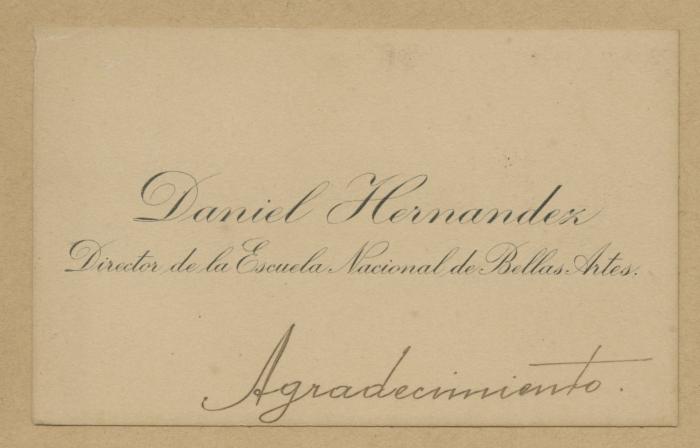 Daniel Hernandez
Director de la Escuela Nacional de Bellas Artes.
Agradecimiento.